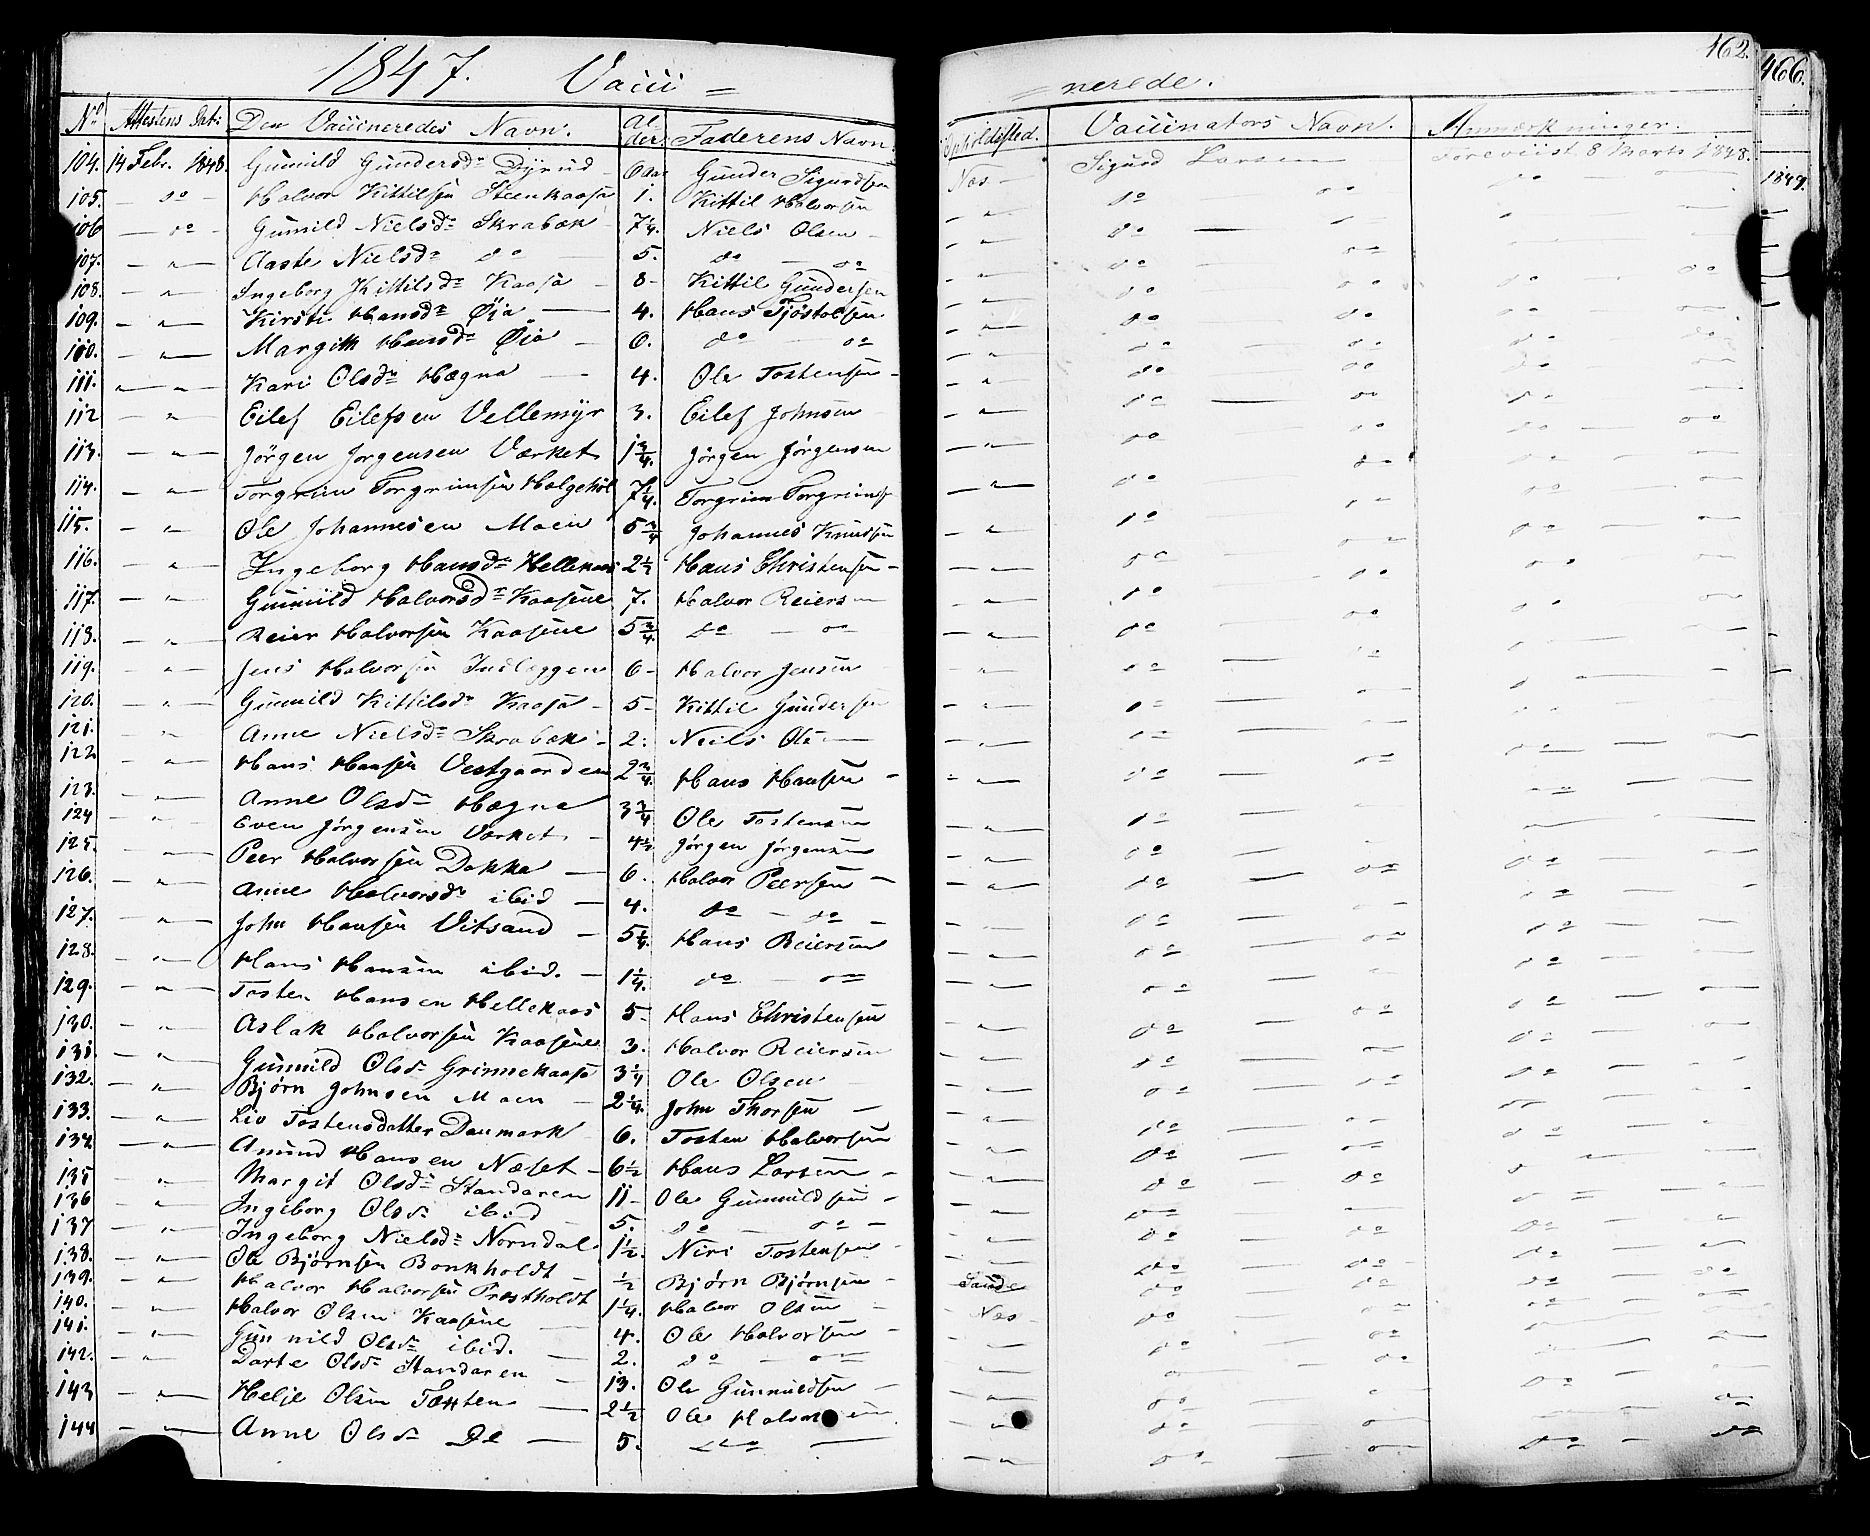 1847. Vacci = = nerede. 162. 466.
No Attestens Dat: Den Vaccineredes Navn. Alder. Faderens Navn Opholdssted. Vaccinators Navn. Anmærkninger.
104. 14 Febr. 1848. Gunnild Gundersdr Dyrud 0 Aar Gunder Sigurdsen Næs - Sigurd Larsen Foreviist 8 Marts 1848.
105. - do - Halvor Kittilsen Steenkaasa 1. Kittil Halvorsen - " - do do do 1849.
106 - do - Gunnild Nielsdr Skrabæk 7 1/4. Niels Olsen - " - do
107. - " - Aaste Nielsdr do 5. do - do - " - do do
108. - " - Ingeborg Kittilsdr Kaasa - 8 - Kittil Gundersen - " - do do do do
109. - " - Kirsti Hansdr Øia - 4. Hans Tjostolsen - " - do do do
110. - " - Margith Hansdr Øia - 0. do do - " - do do do do
111. - " - Kari Olsdr Hægna - 4. Ole Tostensen - - " - do do do
112 - " - Eilef Eilefsen Vellemyr 3. Eilef Johnsen - " - do do do
113. - " - Jørgen Jørgensen Værket 1 3/4. Jørgen Jørgensen - " - do do do do
114. - " - Torgrim Torgrimsen Holgehøl 7 1/4. Torgrim Torgrims - " - do do do
115. - " - Ole Johannesen Moen 5 3/4 Johannes Knudsen - " - do do
116. - " - Ingeborg Hansdr Hellekaas 2 1/2 Hans Christensen - - " - do do
117. - " - Gunnild Halvorsdr Kaasene 7. Halvor Reiersen - " - do do do
118. - " - Reier Halvorsen Kaasene 5 3/4. do - do - " - do do do
119. - " - Jens Halvorsen Indleggen 6 - Halvor Jensen - do
120. - " - Gunnild Kittilsdr Kaasa - 5 - Kittil Gundersen - " - do
121. - " - Anne Nielsdr Skrabæk - 2. Neils Olsen - " - do
122 - " - Hans Hansen Vestgaarden 2 3/4. Hans Hansen - - " - do do
123. - " - Anne Olsdr Hægna 3 3/4 Ole Tostensen - " - do
124 - " - Even Jørgensen Værket - 4 1/2 Jørgen Jørgensen - " - do do
125. - " - Peer Halvorsen Dakka - 6. Halvor Peersen - - " - do do do
126. - " - Anne Halvorsdr ibid - 4. do - do - - " - do do
127. - " - John Hansen Vitsand - 5 1/4. Hans Reiersen - " - do do do
128. - " - Hans Hansen ibid. - 1 1/4. do - do - " - do do
129. - " - Tosten Hansen Hellekaas 5 - Hans Christensen - " - do do do
130. - " - Aslak Halvorsen Kaasene 3. Halvor Reiersen - " - do do
131. - " - Gunnild Olsdr Grinnekaasa 3 1/4 Ole Olsen - " - do do
132. - " - Bjørn Johnsen Moen - 2 1/4. John Thorsen - - " - do
133. - " - Liv Tostensdatter Danmark 6. Tosten Halvorsen - " - do do
134. - " - Amund Hansen Næset - 6 1/2 Hans Larsen - - " - do do
135 - " - Margit Olsdr Standaren 11 - Ole Gunnuldsen - - " - do do
136 - " - Ingeborg Olsdr ibid 5. do - do - - " - do
137 - " - Ingeborg Nielsdr Norndal 1 1/2. Niri Tostensen - - " - do do
138. - " - Ole Bjørnsen Bonkholdt - 1/2 Bjørn Bjørnsen - Sande do do do do
139. - " - Halvor Halvorsen Præstholdt 1 1/4. Halvor Olsen - Næs - do do do
140. - " - Halvor Olsen Kaasene - 4. Ole Halvorsen - - " - do do
141. - " - Gunnild Olsdr ibid. - 2. do - do - " - do
142. - " - Dorte Olsdr Standaren - 13. Ole Gunnuldsen - - " - do do
143 - " - Helje Olsen Tætten - 2 1/2 Ole Halvorsen - " - do do
144 - " - Anne Olsdr do - 5. do - " - do do do do